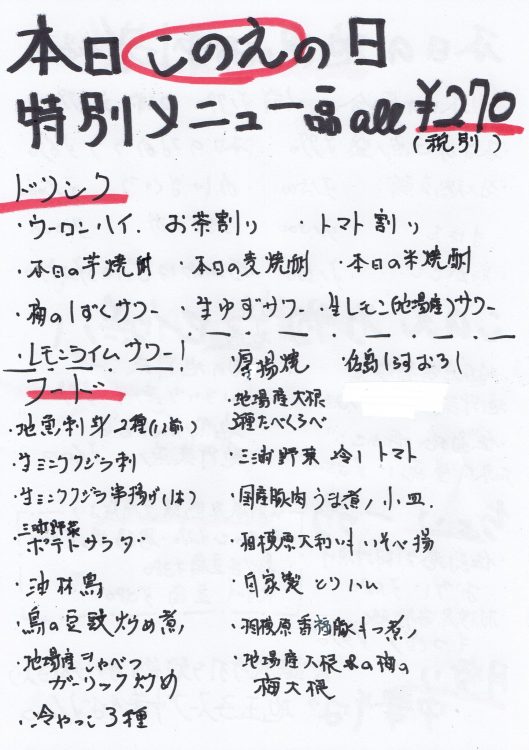 本日このえの日
特別メニュー品all ¥270
(税別)
ドリンク
・ウーロンハイ ・お茶割り ・トマト割り
・本日の芋焼酎 ・本日の麦焼酎 ・本日の米焼酎
・梅のしずくサワー ・生ゆずサワー ・生レモン(地場産)サワー
・レモンライムサワー!
フード
・地魚刺身2種(1人前)
・生ミンククジラ刺
・生ミンククジラ串揚げ(1本)
・三浦野菜
ポテトサラダ
・油林鳥
・鳥の豆鼓炒め煮
・地場産きゃべつ
ガーリック炒め
・冷やっこ3種
・厚揚焼 ・佐島しらすおろし
・地場産大根
3種たべくらべ
・三浦野菜 冷しトマト
・国産豚肉うま煮 小皿
・相模原大和いも いそべ揚
・自家製とりハム
・相模原香福豚もつ煮
・地場産大根 の梅の
梅大根